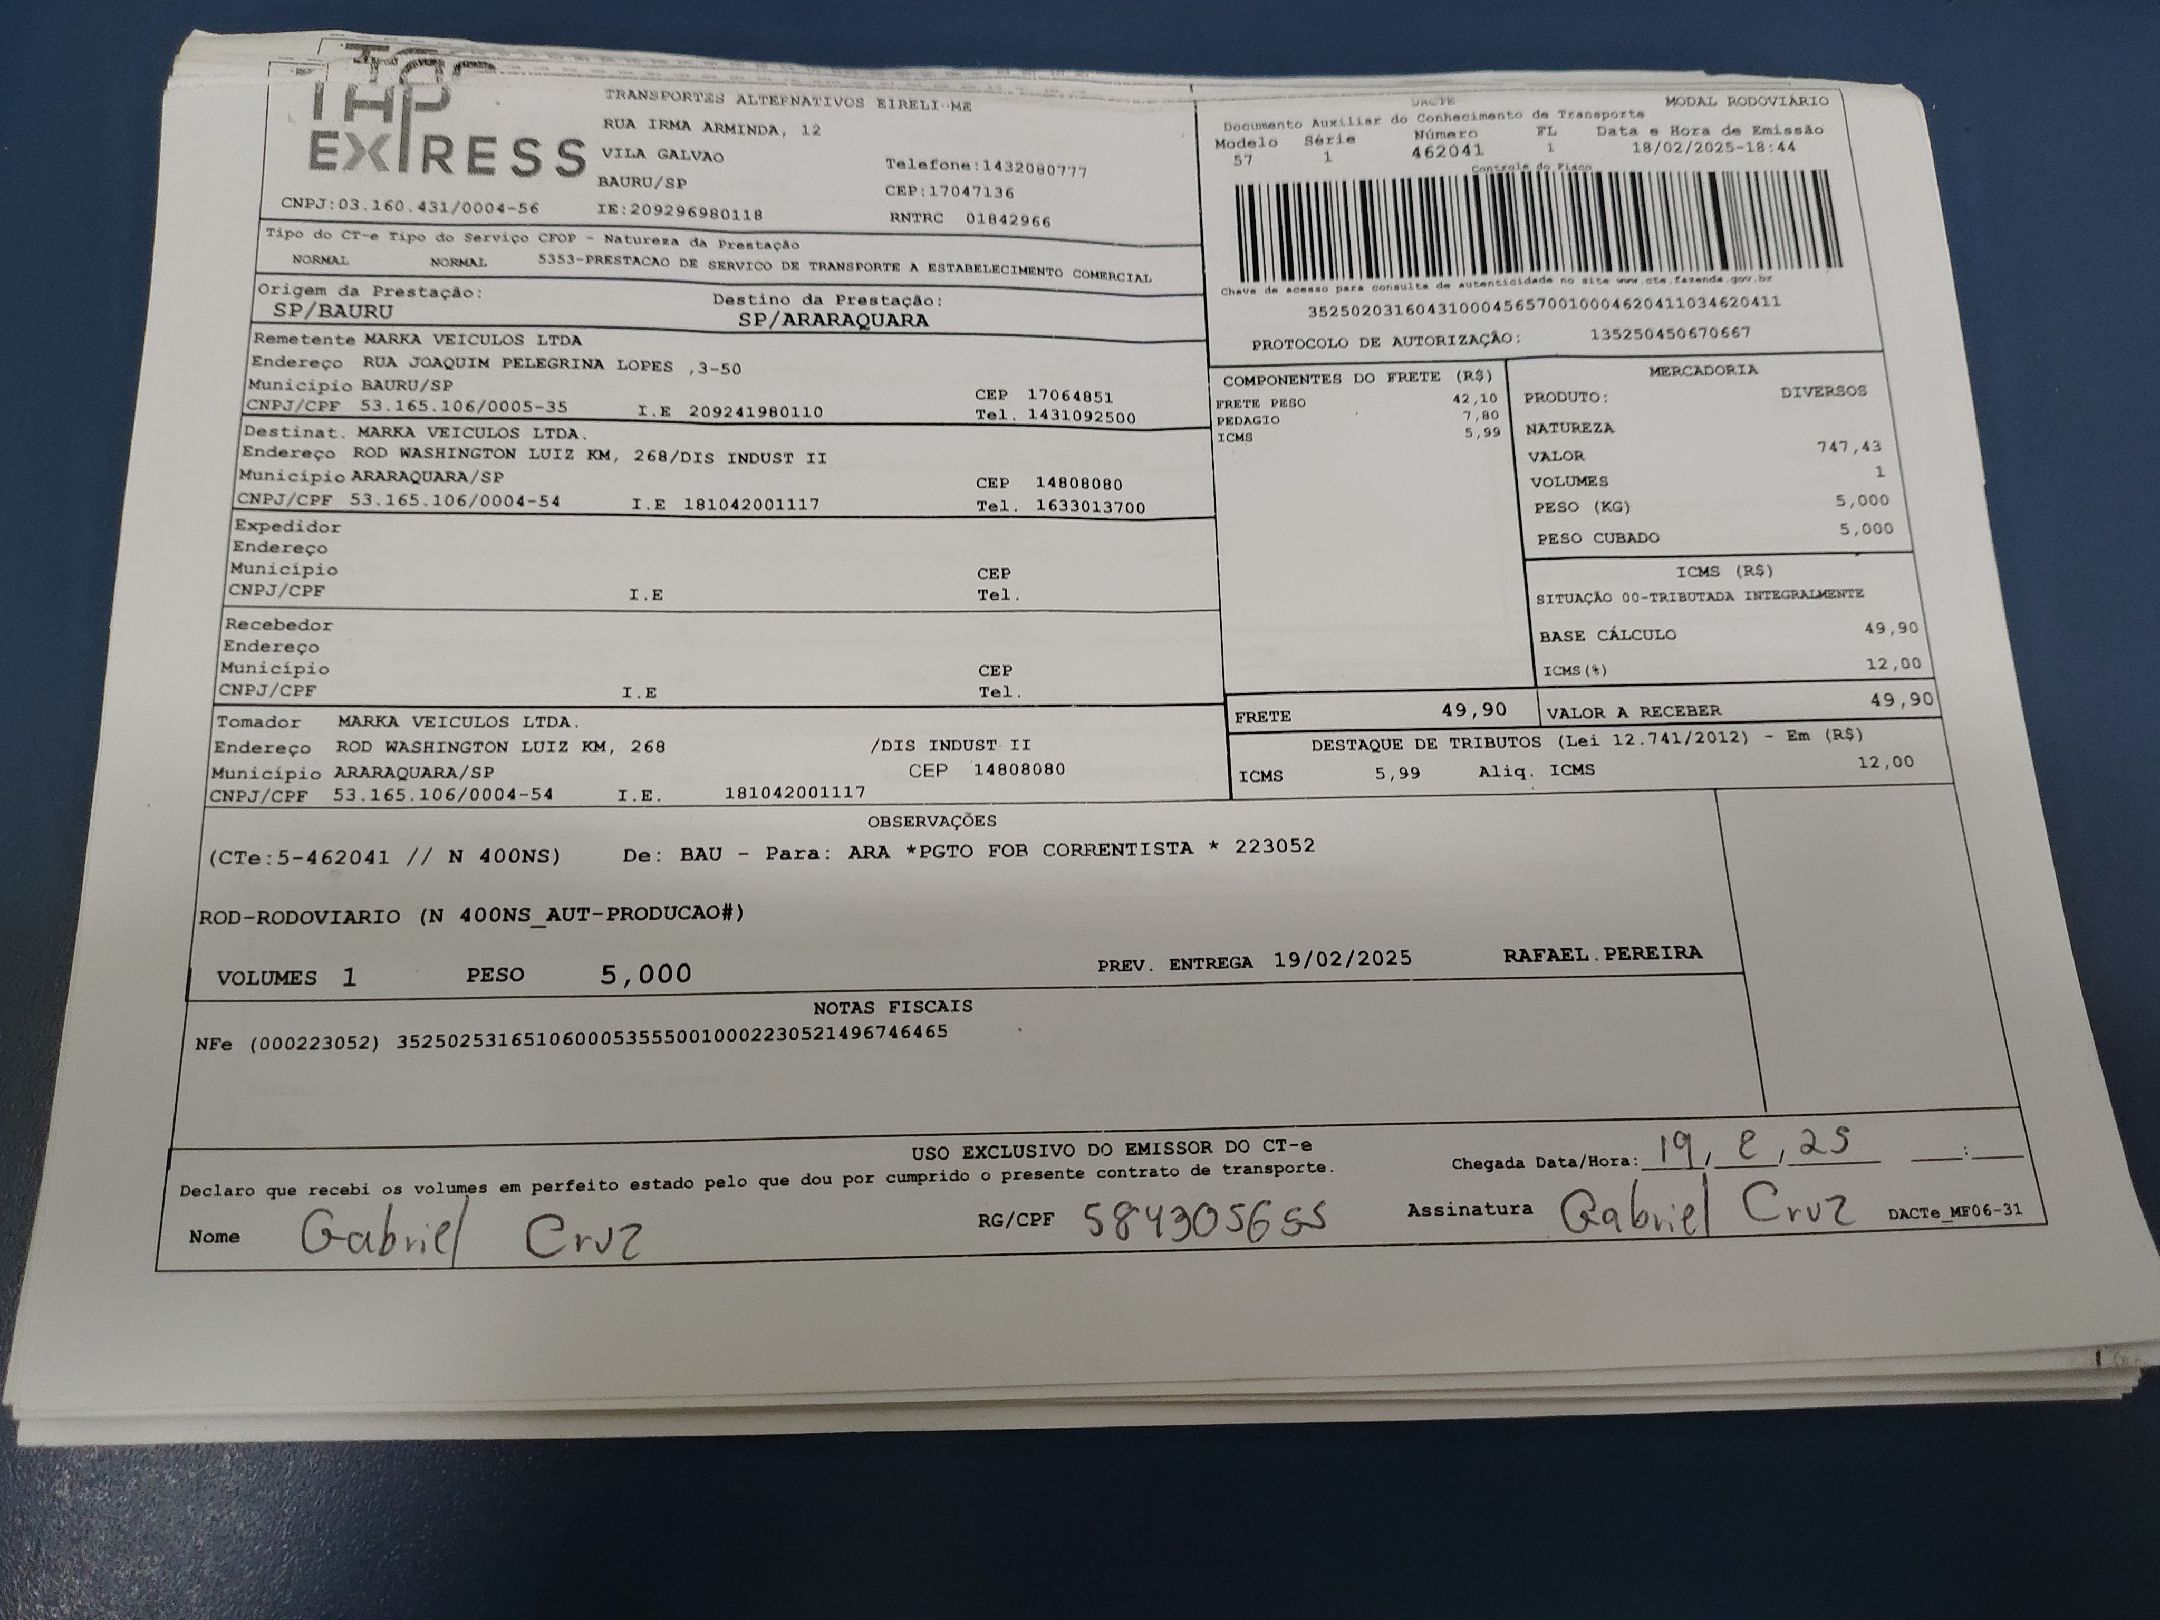 TAP
EXPRESS
TRANSPORTES ALTERNATIVOS EIRELI-ME
RUA IRMA ARMINDA, 12
VILA GALVAO Telefone:1432080777
BAURU/SP CEP:17047136
CNPJ:03.160.431/0004-56 IE:209296980118 RNTRC 01842966
DACTE MODAL RODOVIÁRIO
Documento Auxiliar do Conhecimento de Transporte
Modelo Série Número FL Data e Hora de Emissão
57 1 462041 1 18/02/2025-18:44
Controle do Fisco
Chave de acesso para consulta de autenticidade no site www.cte.fazenda.gov.br
35250203160431000456570010004620411034620411
PROTOCOLO DE AUTORIZAÇÃO: 135250450670667
Tipo do CT-e Tipo do Serviço CFOP - Natureza da Prestação
NORMAL NORMAL 5353-PRESTACAO DE SERVICO DE TRANSPORTE A ESTABELECIMENTO COMERCIAL
Origem da Prestação: Destino da Prestação:
SP/BAURU SP/ARARAQUARA
Remetente MARKA VEICULOS LTDA
Endereço RUA JOAQUIM PELEGRINA LOPES ,3-50
Município BAURU/SP CEP 17064851
CNPJ/CPF 53.165.106/0005-35 I.E 209241980110 Tel. 1431092500
Destinat. MARKA VEICULOS LTDA.
Endereço ROD WASHINGTON LUIZ KM, 268/DIS INDUST II
Município ARARAQUARA/SP CEP 14808080
CNPJ/CPF 53.165.106/0004-54 I.E 181042001117 Tel. 1633013700
Expedidor
Endereço
Município CEP
CNPJ/CPF I.E Tel.
Recebedor
Endereço
Município CEP
CNPJ/CPF I.E Tel.
Tomador MARKA VEICULOS LTDA.
Endereço ROD WASHINGTON LUIZ KM, 268 /DIS INDUST II
Município ARARAQUARA/SP CEP 14808080
CNPJ/CPF 53.165.106/0004-54 I.E. 181042001117
COMPONENTES DO FRETE (R$)
FRETE PESO 42,10
PEDAGIO 7,80
ICMS 5,99
MERCADORIA
PRODUTO: DIVERSOS
NATUREZA
VALOR 747,43
VOLUMES 1
PESO (KG) 5,000
PESO CUBADO 5,000
ICMS (R$)
SITUAÇÃO 00-TRIBUTADA INTEGRALMENTE
BASE CÁLCULO 49,90
ICMS(%) 12,00
FRETE 49,90 VALOR A RECEBER 49,90
DESTAQUE DE TRIBUTOS (Lei 12.741/2012) - Em (R$)
ICMS 5,99 Aliq. ICMS 12,00
OBSERVAÇÕES
(CTe:5-462041 // N 400NS) De: BAU - Para: ARA *PGTO FOB CORRENTISTA * 223052
ROD-RODOVIARIO (N 400NS_AUT-PRODUCAO#)
VOLUMES 1 PESO 5,000 PREV. ENTREGA 19/02/2025 RAFAEL.PEREIRA
NOTAS FISCAIS
NFe (000223052) 35250253165106000535550010002230521496746465
USO EXCLUSIVO DO EMISSOR DO CT-e
Declaro que recebi os volumes em perfeito estado pelo que dou por cumprido o presente contrato de transporte. Chegada Data/Hora: 19, 2, 25 __:__
Nome Gabriel Cruz RG/CPF 584305655 Assinatura Gabriel Cruz DACTe_MF06-31